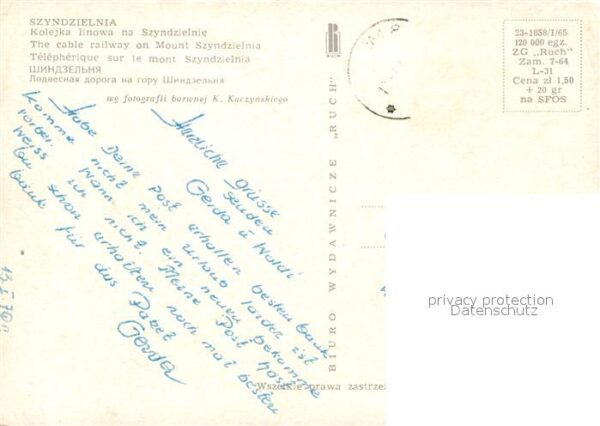 SZYNDZIELNIA
Kolejka linowa na Szyndzielnię
The cable railway on Mount Szyndzielnia
Téléphérique sur le mont Szyndzielnia
ШИНДЗЕЛЬНЯ
Подвесная дорога на гору Шиндзельня
wg fotografii barwnej K. Kaczyńskiego
RUCH
BIURO WYDAWNICZE „RUCH"
23-1658/I/65
120 000 egz.
ZG „Ruch"
Zam. 7-64
L-31
Cena zł 1,50
+ 20 gr
na SFOS
Herzliche Grüsse
senden
Gerda u Wandi
Habe Deine Post erhalten besten Dank
Komme nicht mein Urlaub leider ist
vorbei. Wann ich ein neuen bekomme
weiss ich nicht. Meine Post hast
Du schon erhalten noch mal besten
Dank für das Paket
Gerda
"Wszelkie prawa zastrze
privacy protection
Datenschutz